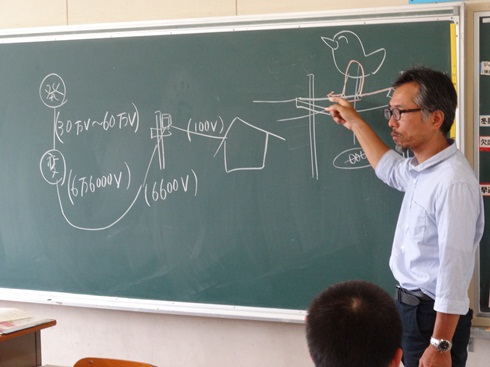 発
(30万V〜60万V)
変
(6万6000V)
(6600V)
(100V)